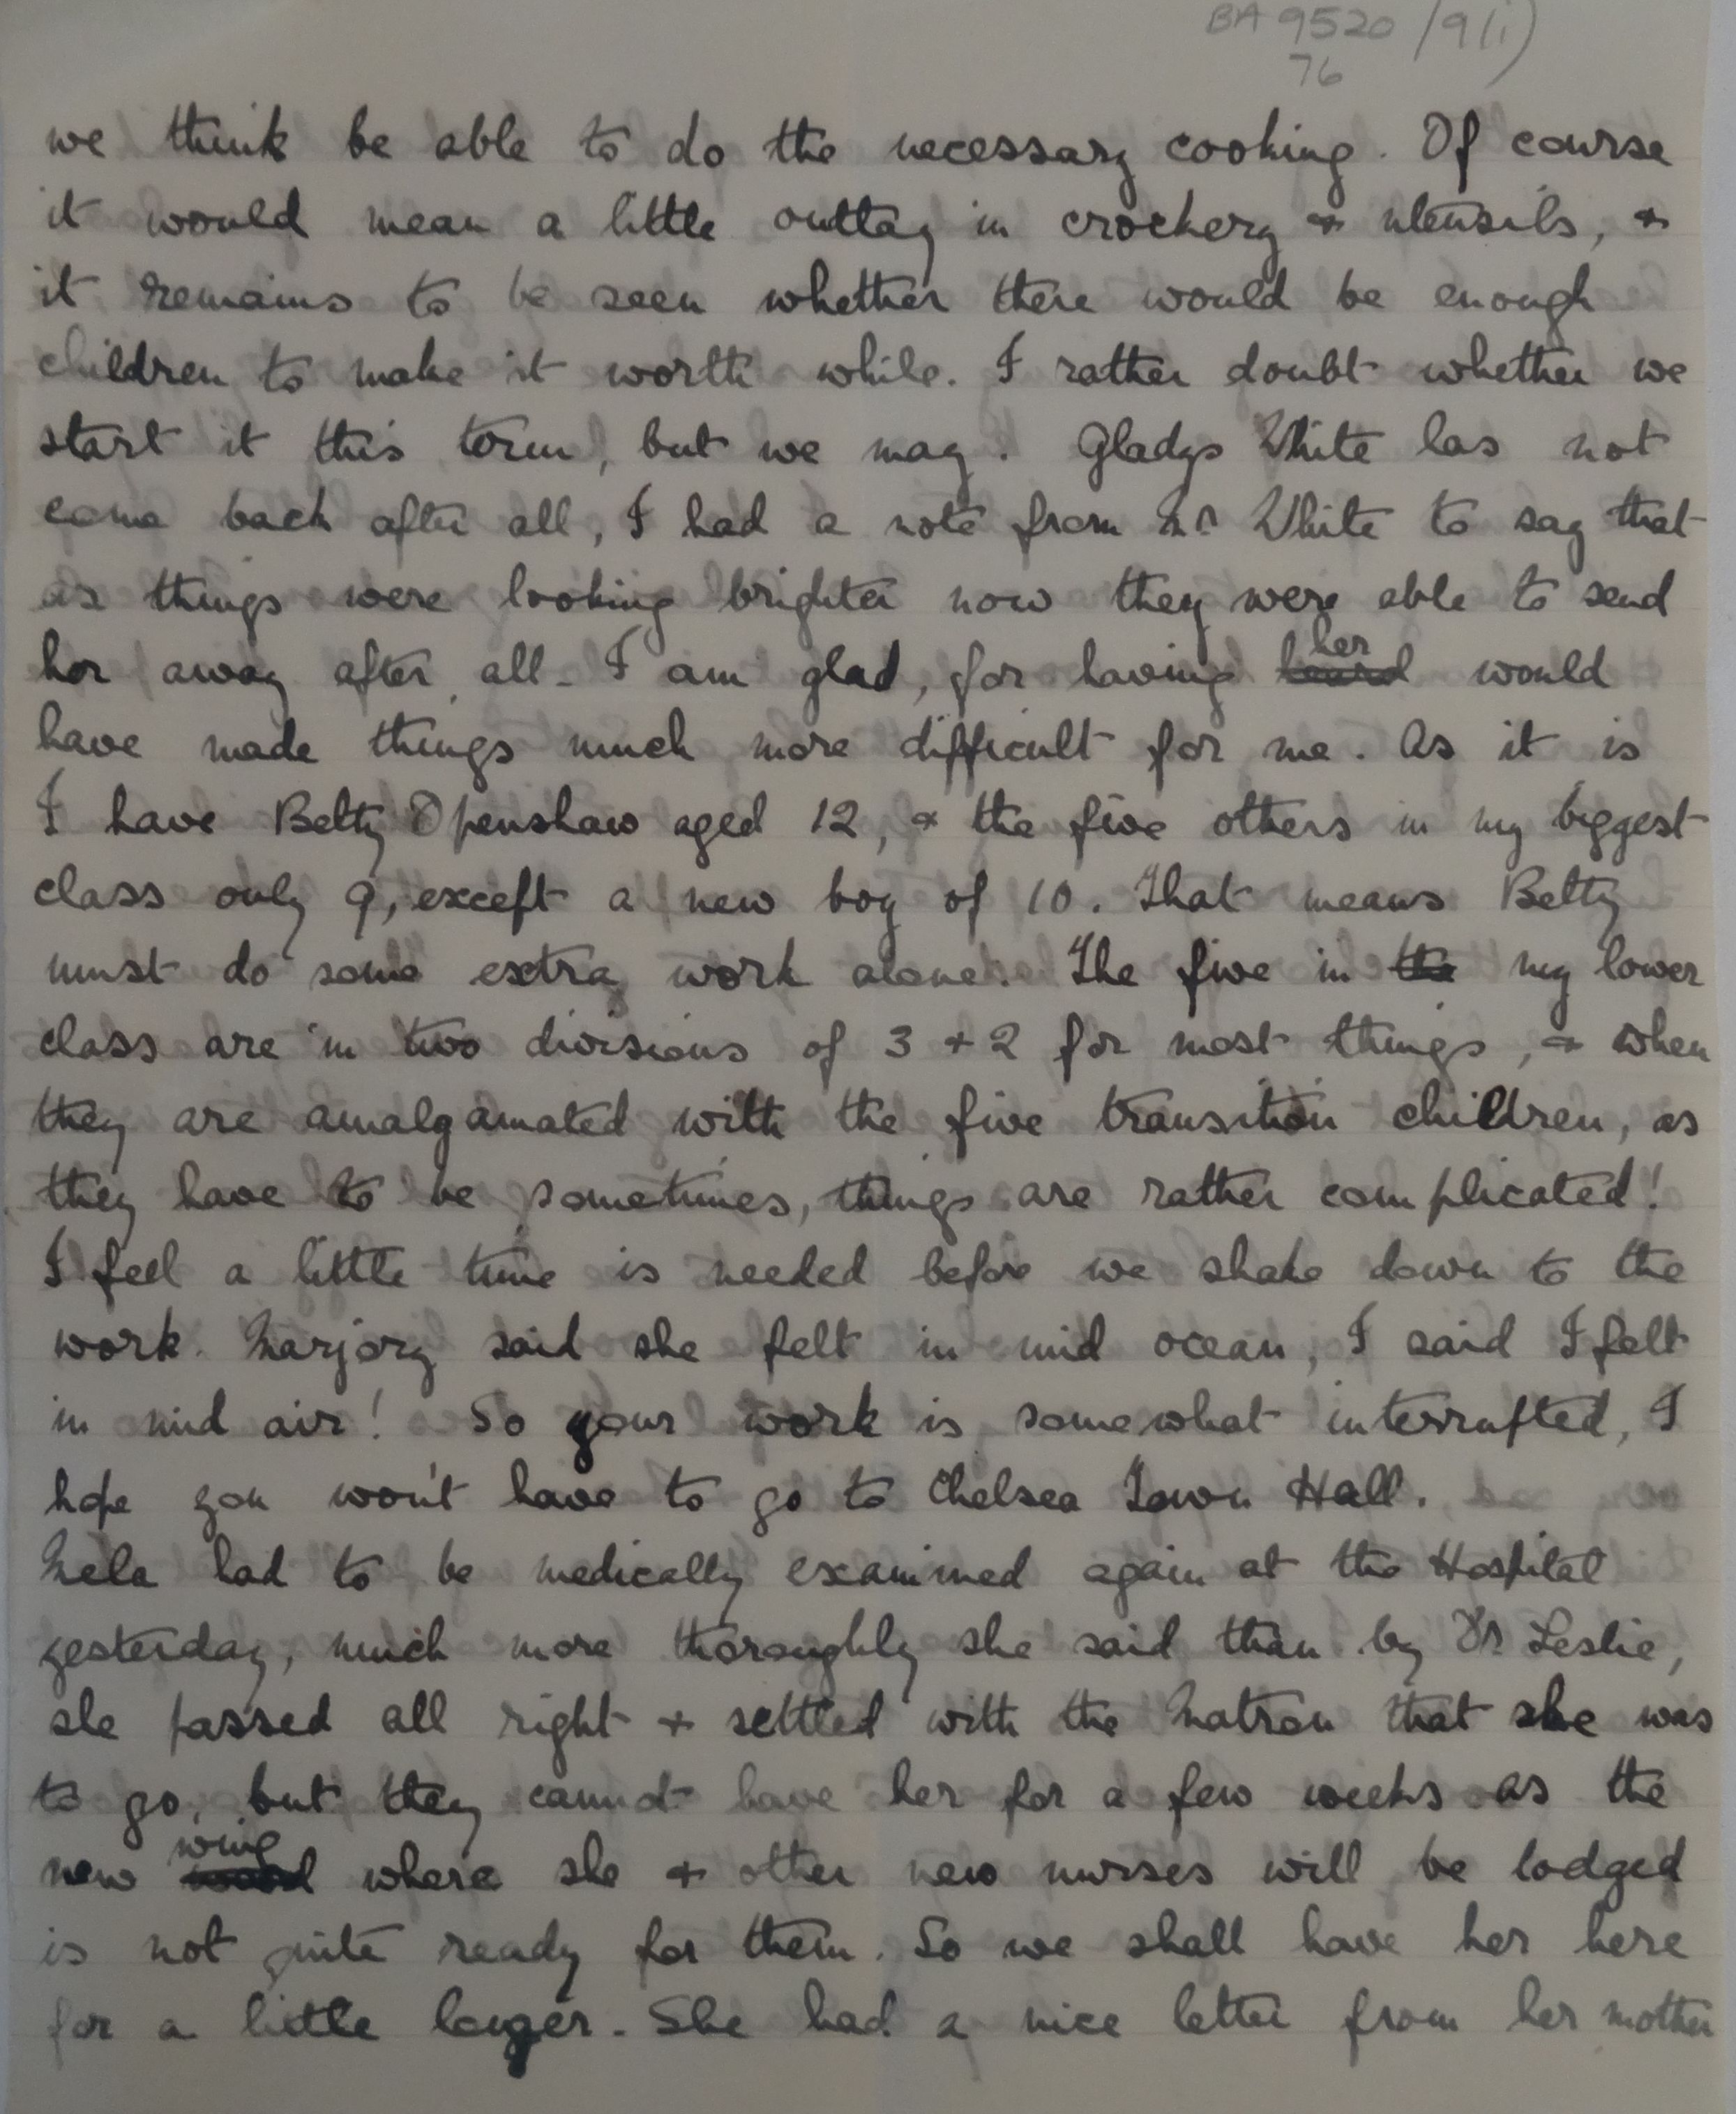 BA 9520/9(i)
76
we think be able to do the necessary cooking. Of course
it would mean a little outlay in crockery & utensils, &
it remains to be seen whether there would be enough
children to make it worth while. I rather doubt whether we
start it this term, but we may. Gladys White has not
come back after all, I had a note from Mr White to say that
as things were looking brighter now they were able to send
her away after all. I am glad, for having her would
have made things much more difficult for me. As it is
I have Betty Openshaw aged 12, & the five others in my biggest
class only 9, except a new boy of 10. That means Betty
must do some extra work alone. The five in the my lower
class are in two divisions of 3 + 2 for most things, & when
they are amalgamated with the five transition children, as
they have to be sometimes, things are rather complicated!
I feel a little time is needed before we shake down to the
work. Marjory said she felt in mid ocean, I said I felt
in mid air! So your work is somewhat interrupted, I
hope you won't have to go to Chelsea Town Hall.
Mela had to be medically examined again at the Hospital
yesterday, much more thoroughly she said than by Dr Leslie,
she passed all right & settled with the Matron that she was
to go, but they cannot have her for a few weeks as the
new wing where she & other new nurses will be lodged
is not quite ready for them. So we shall have her here
for a little longer. She had a nice letter from her mother